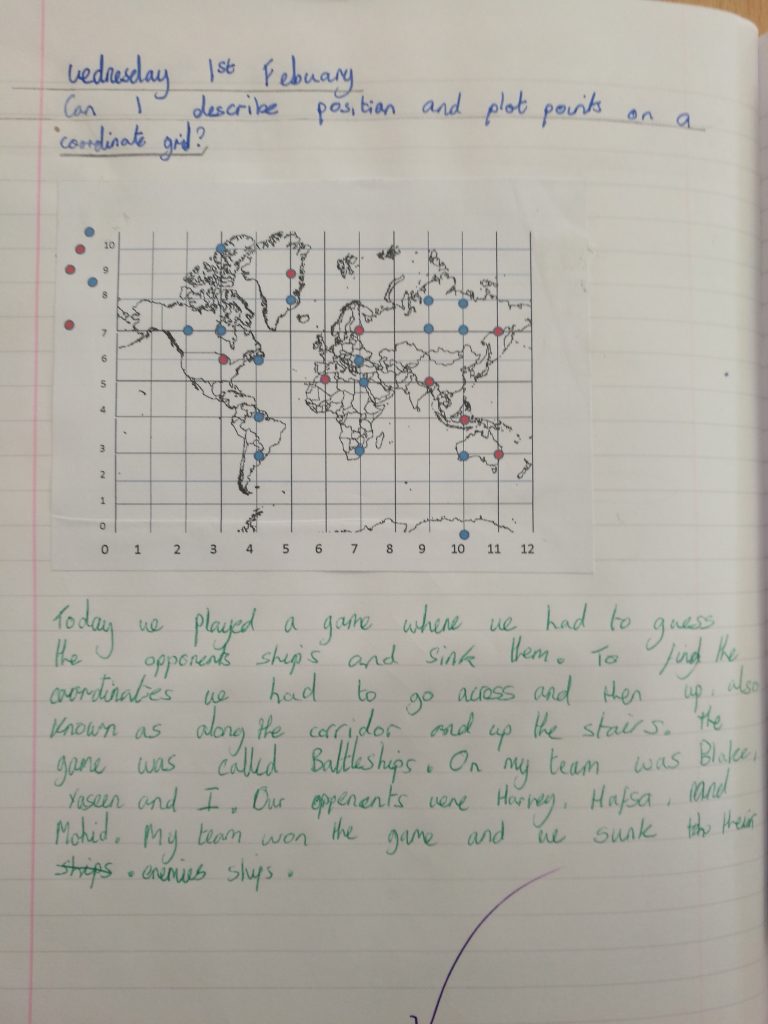 wednesday 1st Febuary
Can I describe position and plot points on a
coordinate grid?
10
9
8
7
6
5
4
3
2
1
0
0 1 2 3 4 5 6 7 8 9 10 11 12
Today we played a game where we had to guess
the opponents ships and sink them. To find the
coordinaties we had to go across and then up, also
known as along the corridor and up the stairs. The
game was called Battleships. On my team was Blake,
Yaseen and I. Our oppenents were Harvey, Hafsa, and
Mohid. My team won the game and we sunk their
ships. enemies ships.